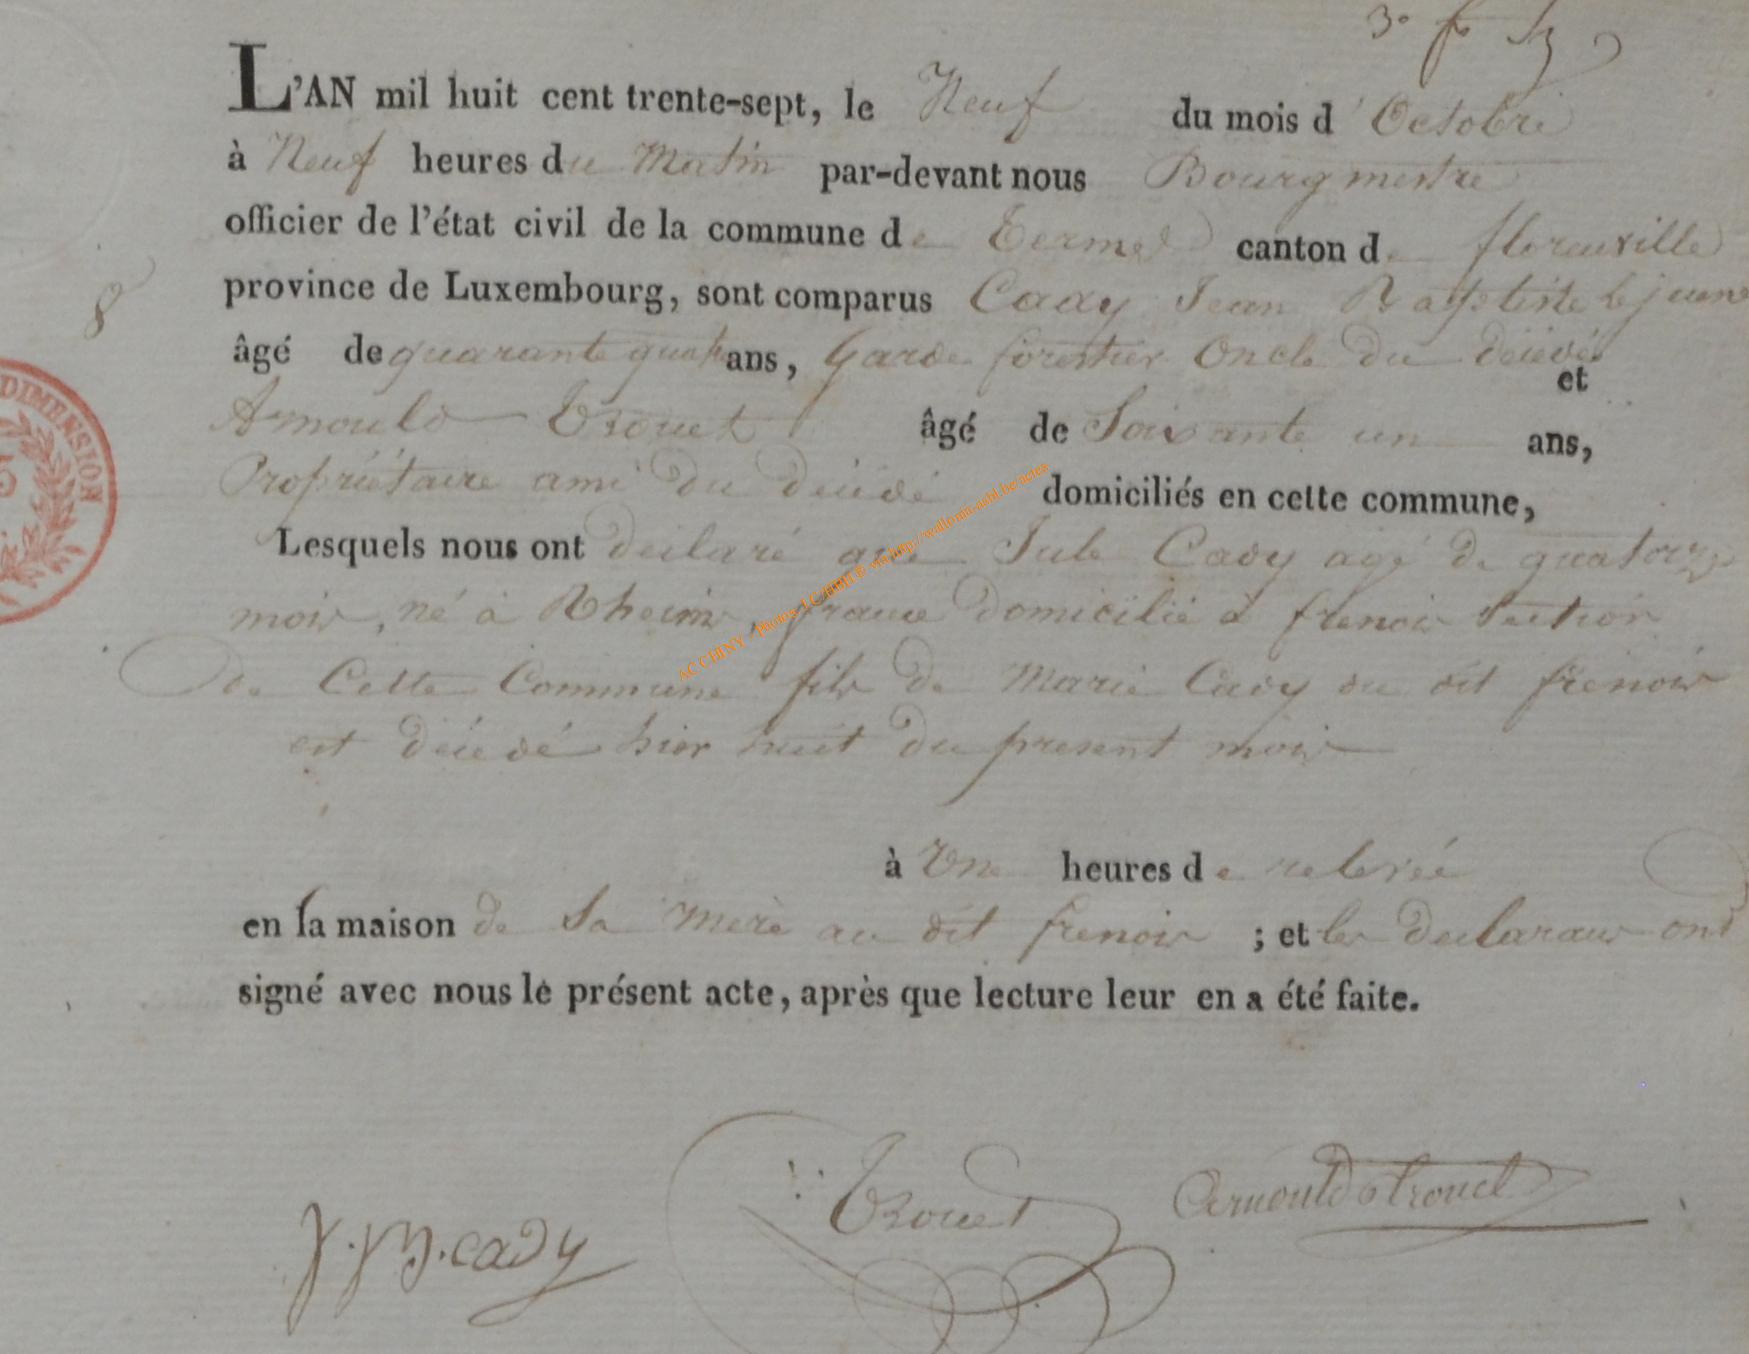 L'AN mil huit cent trente-sept, le Neuf du mois d'Octobre
à Neuf heures du Matin par-devant nous Bourgmestre
officier de l'état civil de la commune de Termes canton de florenville
province de Luxembourg, sont comparus Cady Jean Baptiste le jeune
8
âgé de quarante quatre ans, Garde forestier Oncle du décédé
et
Arnould Trouet âgé de Soixante un ans,
Propriétaire ami du décédé domiciliés en cette commune,
Lesquels nous ont déclaré que Jule Cady agé de quatorze
mois, né à Rheims, france domicilié à frenois Section
de Cette Commune fils de Marie Cady du dit frenois
est décédé hier huit du present mois
à Une heures de relevée
en la maison de Sa Mère au dit frenois ; et les declarans ont
signé avec nous le présent acte, après que lecture leur en a été faite.
J.B. cady Trouet Arnould Trouet
DIMENSION
AC CHINY - Photos LC/HBH © via http://wallonia-asbl.be/actes